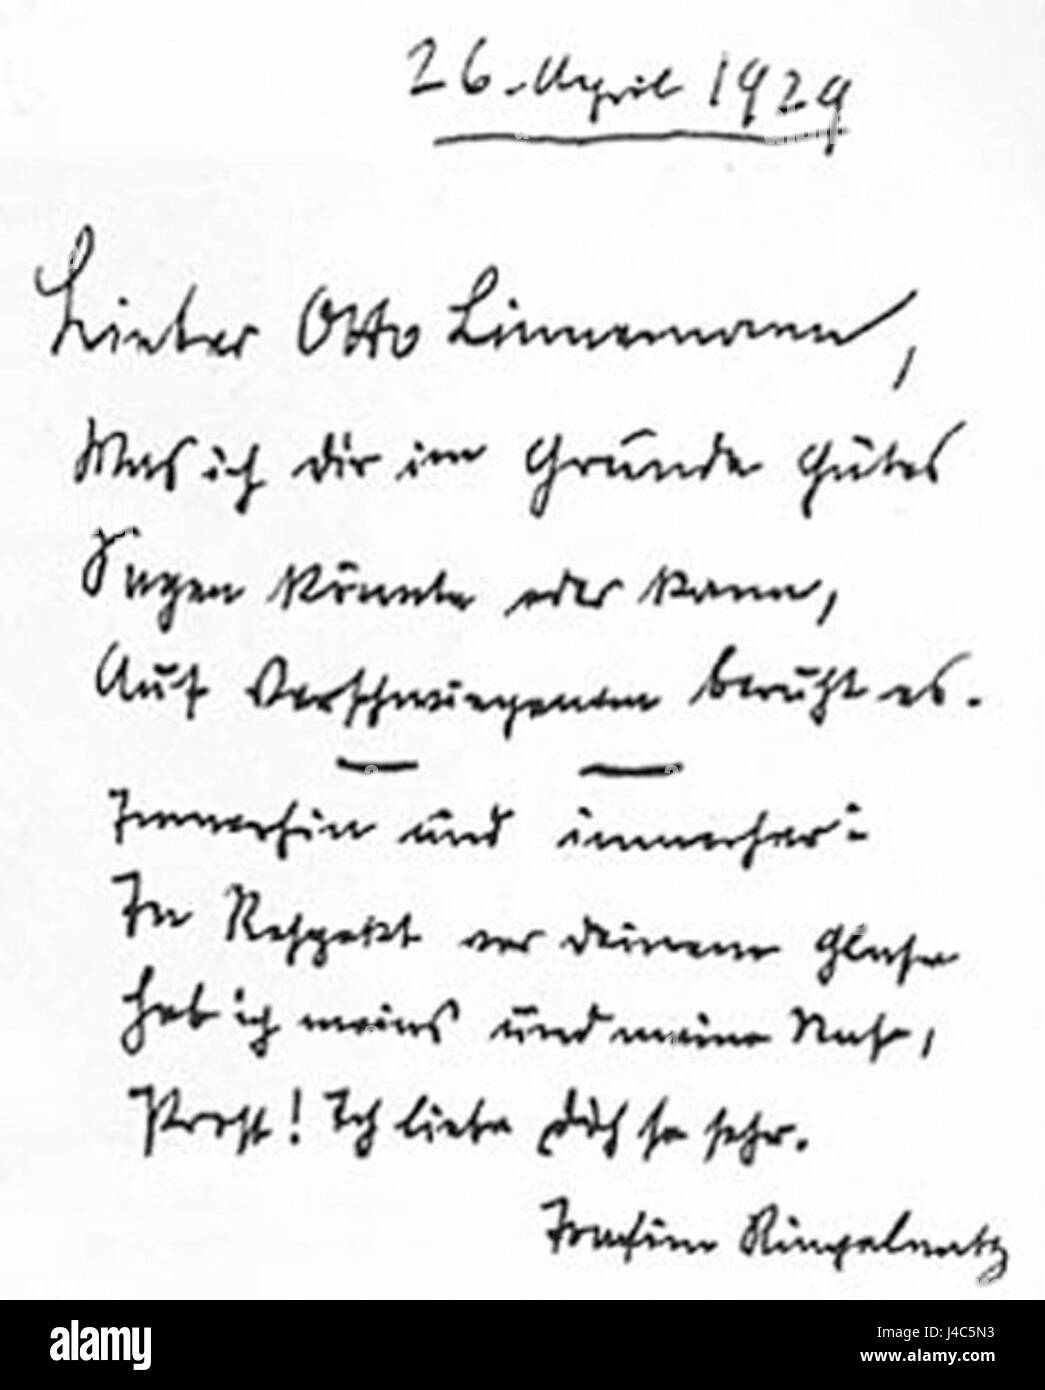 26. April 1929
Lieber Otto Linnemann,
Was ich dir im Grunde Gutes
Sagen könnte oder kann,
Auf Verschwiegenem beruht es.
Immerhin und immerher:
In Respekt vor deinem Glase
Heb ich meins und meine Nase,
Prost! Ich liebe Dich so sehr.
Joachim Ringelnatz
alamy
Image ID: J4C5N3
www.alamy.com